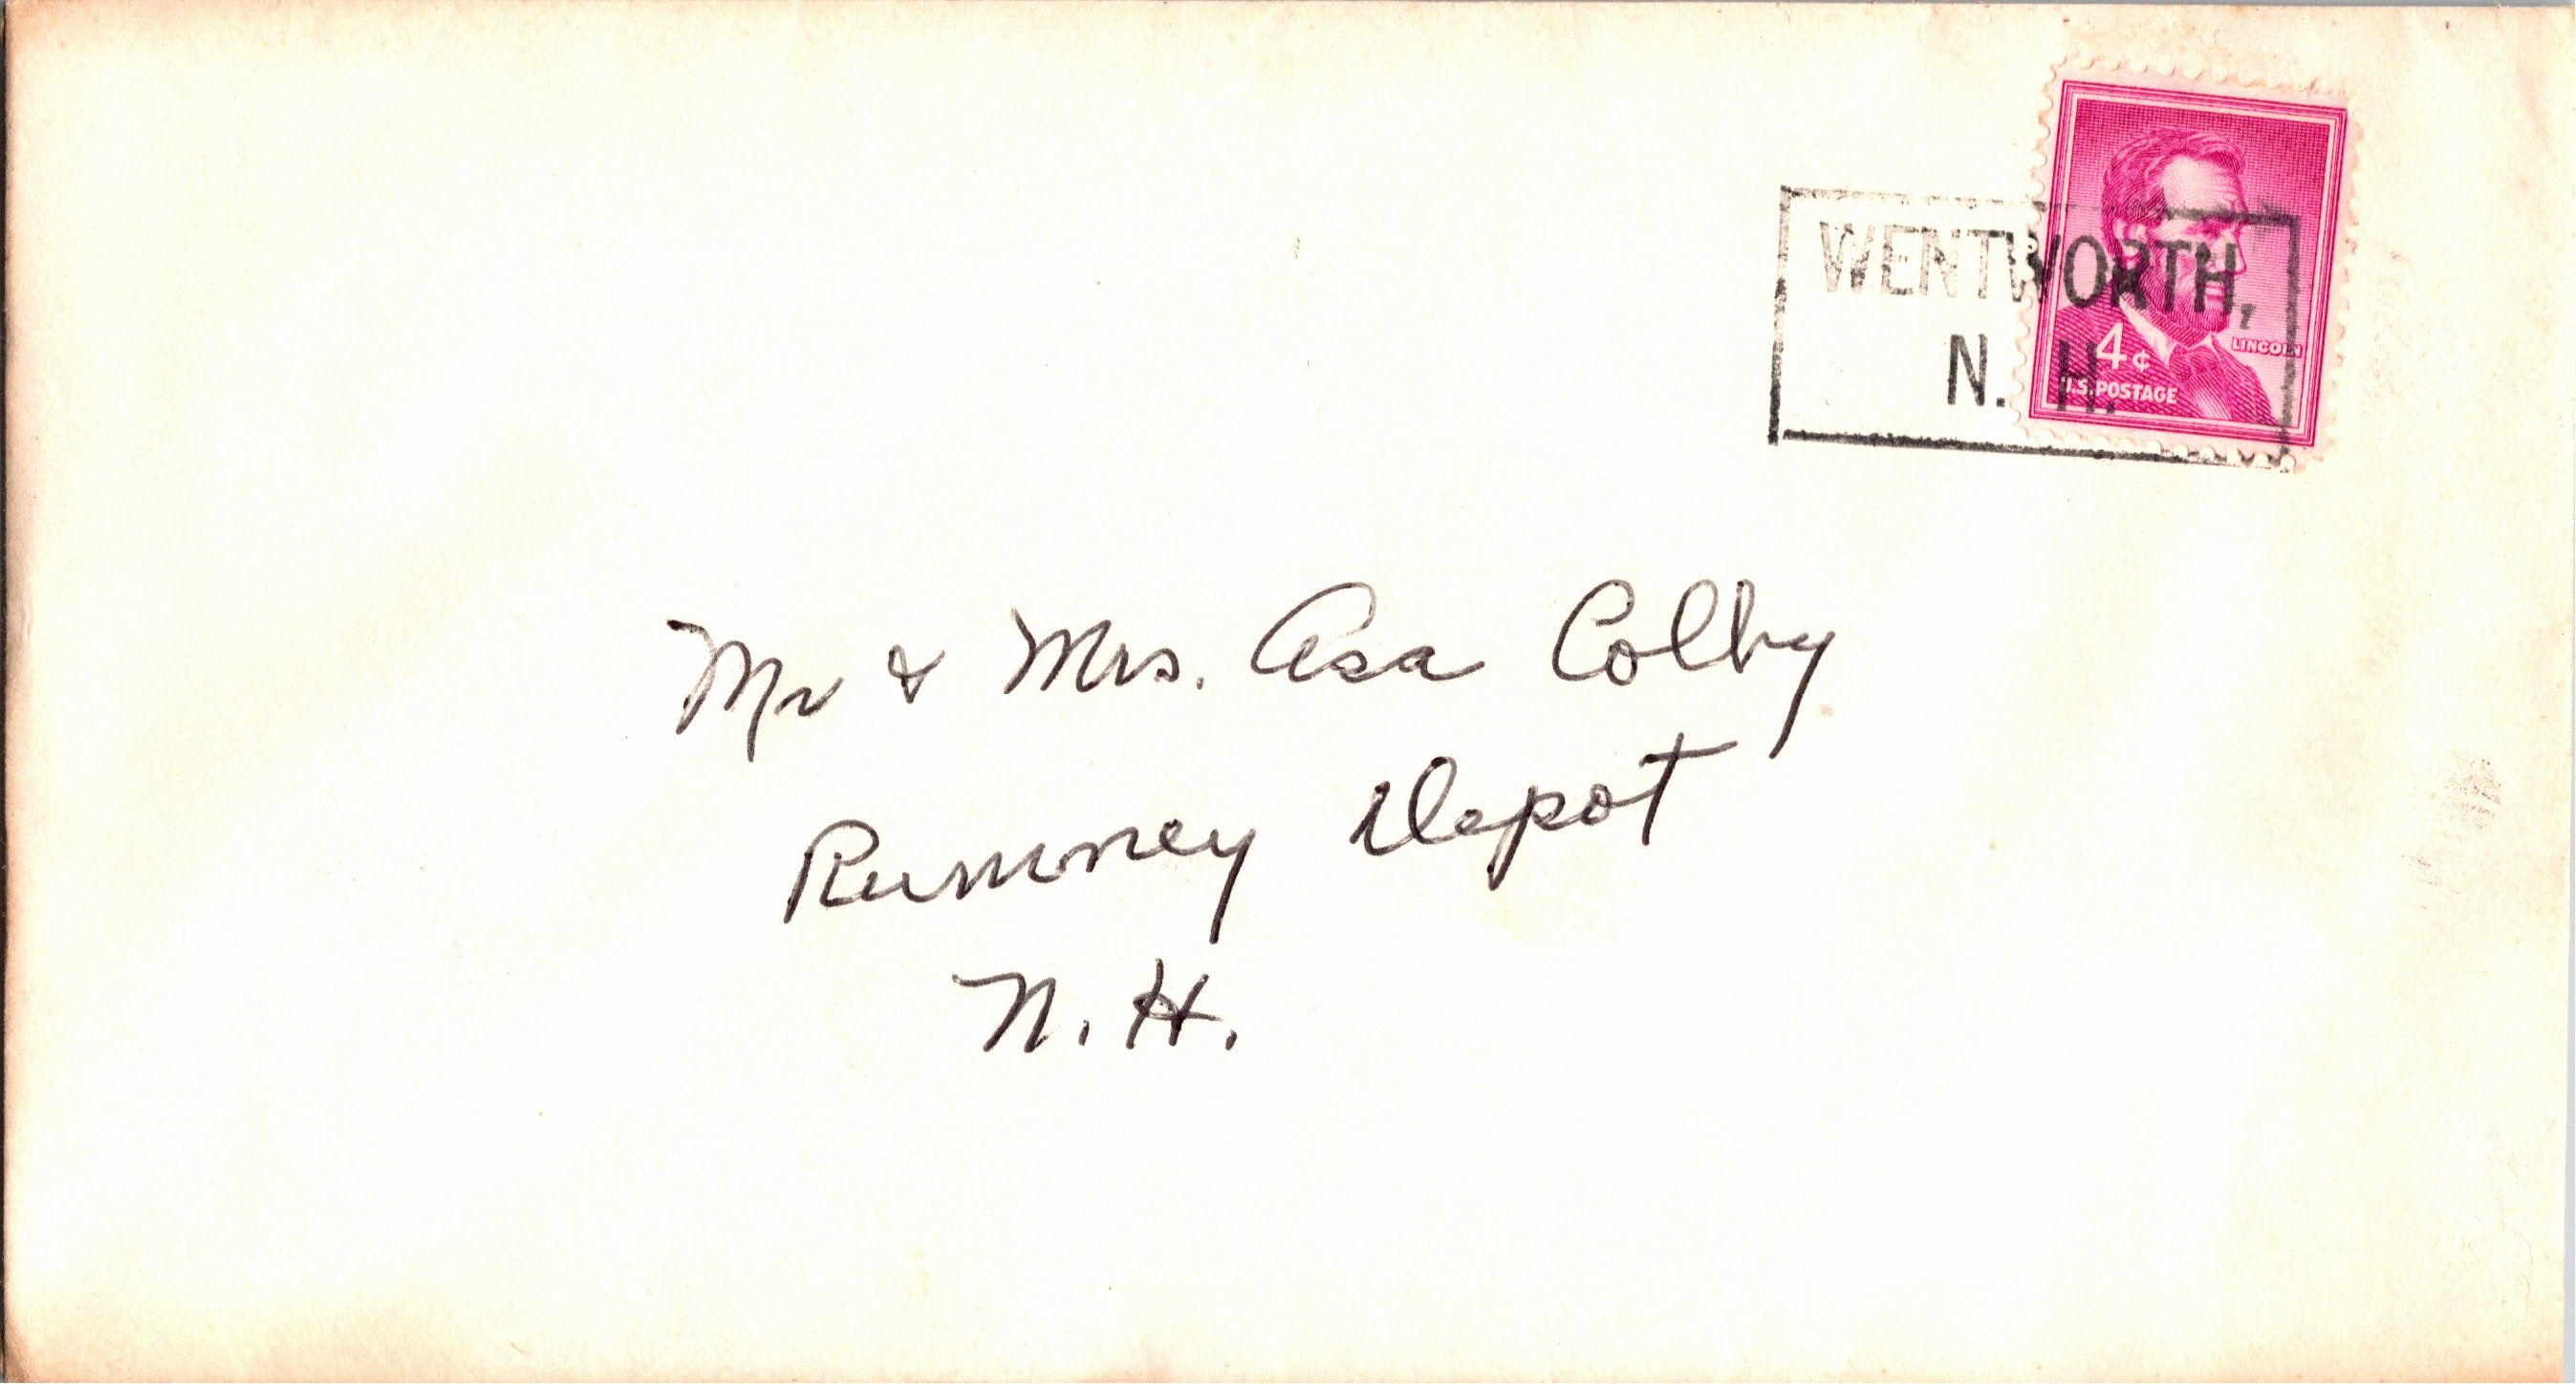 WENTWORTH,
N. H.
4¢
LINCOLN
U.S. POSTAGE
Mr & Mrs. Asa Colby
Rumney Depot
N. H.